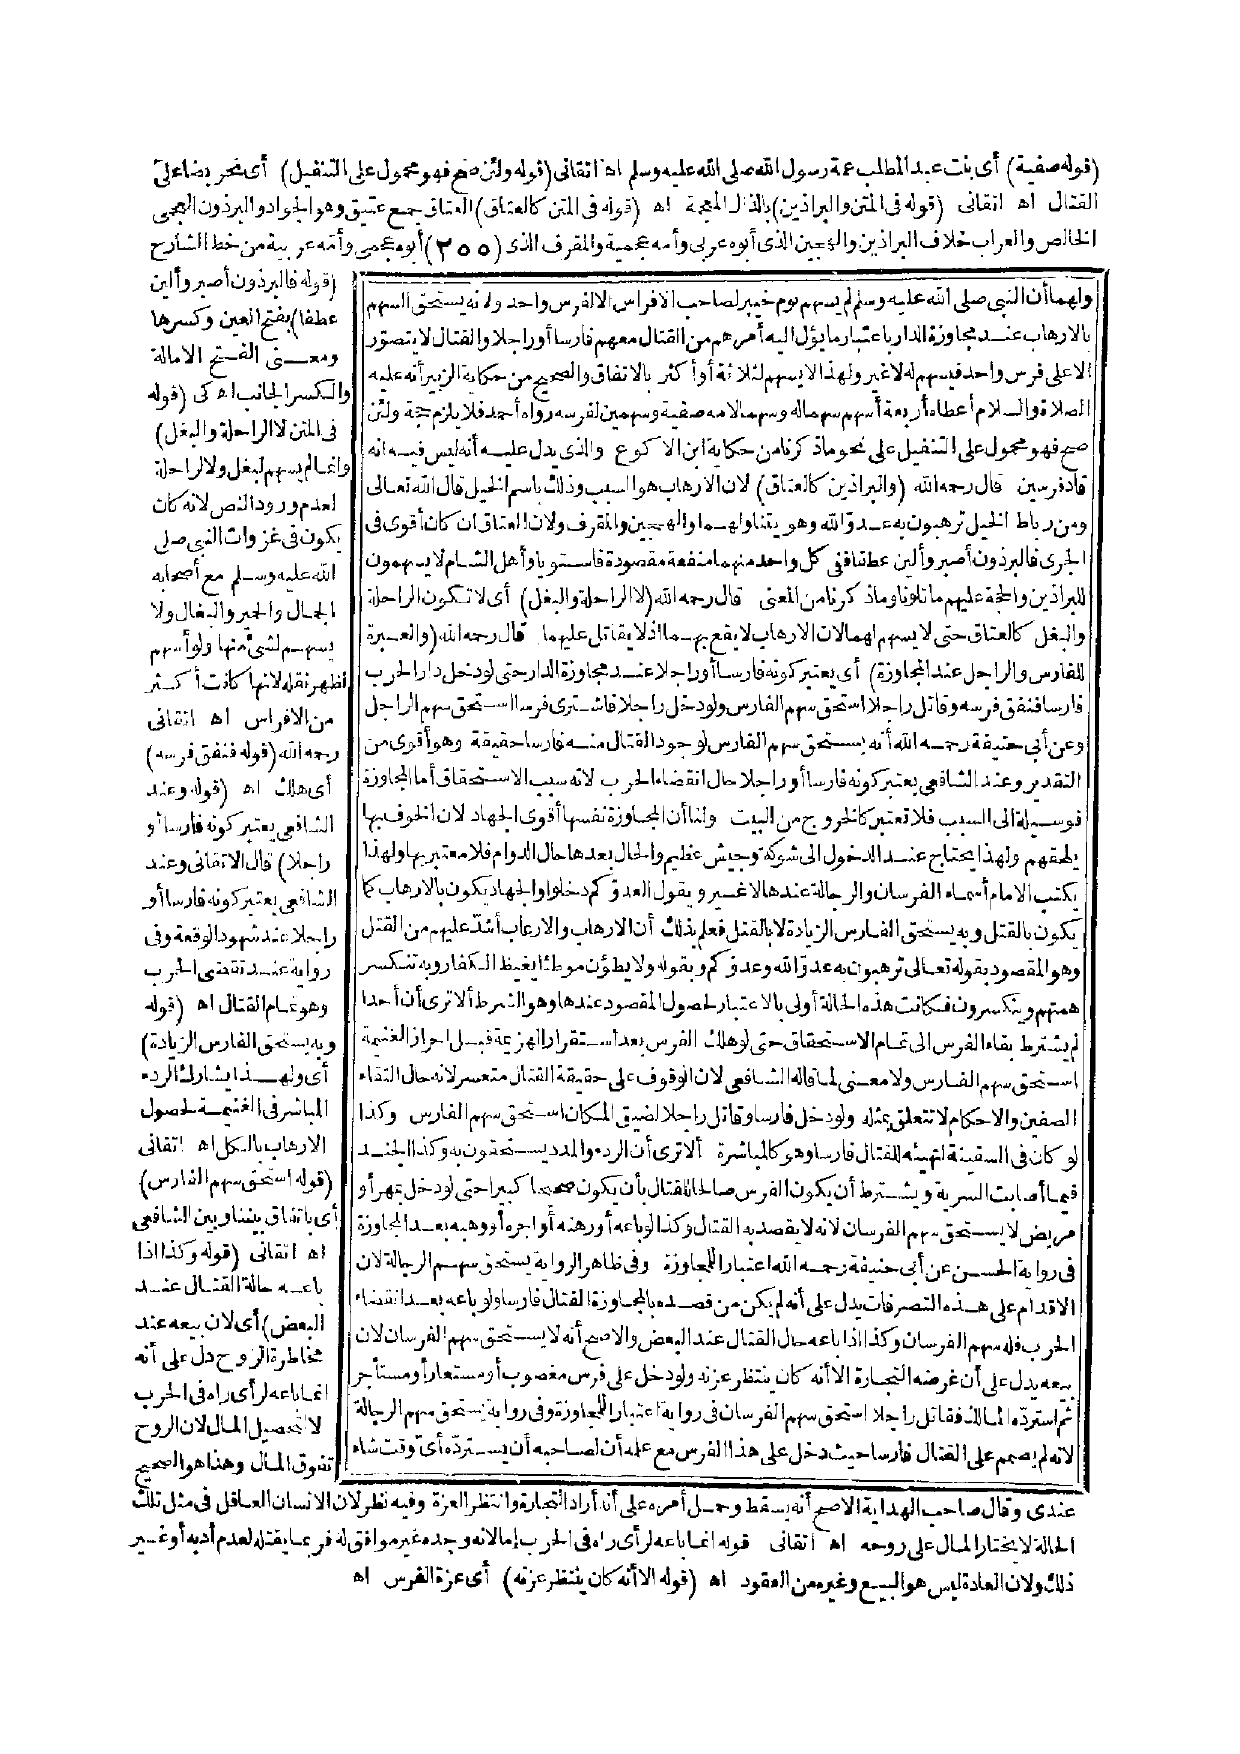 (قوله صفية) أى بنت عبد المطلب عمة رسول الله صلى الله عليه وسلم اه اتقانى (قوله ولئن صح فهو محمول على التنفيل) أى تحريضا على
القتال اه اتقانى (قوله فى المتن والبراذين) بالذال المعجمة اه (قوله فى المتن كالعتاق) العتاق جمع عتيق وهو الجواد والبرذون العجمى
الخالص والعراب خلاف البراذين والهجين الذى أبوه عربى وأمه عجمية والمقرف الذى (٢٥٥) أبوه عجمى وأمه عربية من خط الشارح
ولهما أن النبى صلى الله عليه وسلم لم يسهم يوم خيبر لصاحب الافراس الا لفرس واحد ولانه يستحق السهم
بالارهاب عند مجاوزة الدار باعتبار ما يؤل اليه أمرهم من القتال معهم فارسا أو راجلا والقتال لا يتصور
الا على فرس واحد فيسهم له لا غير ولهذا لا يسهم لثلاثة أو أكثر بالاتفاق والصحيح من حكاية الزبير أنه عليه
الصلاة والسلام أعطاه أربعة أسهم سهما له وسهما لامه صفية وسهمين لفرسه رواه أحمد فلا يلزم حجة ولئن
صح فهو محمول على التنفيل على نحو ما ذكرنا من حكاية ابن الاكوع والذى يدل عليه أنه ليس فيه انه
قاد فرسين قال رحمه الله (والبراذين كالعتاق) لان الارهاب هو السبب وذلك باسم الخيل قال الله تعالى
ومن رباط الخيل ترهبون به عدو الله وهو يتناولهما والهجين والمقرف ولان العتاق ان كان أقوى فى
الجرى فالبرذون أصبر وألين عطفا ففى كل واحد منهما منفعة مقصودة فاستويا وأهل الشام لا يسهمون
للبراذين والحجة عليهم ما تلونا وما ذكرنا من المعنى قال رحمه الله (لا الراحلة والبغل) أى لا تكون الراحلة
والبغل كالعتاق حتى لا يسهم لهما لان الارهاب لا يقع بهما اذ لا يقاتل عليهما قال رحمه الله (والعبرة
للفارس والراجل عند المجاوزة) أى يعتبر كونه فارسا أو راجلا عند مجاوزة الدار حتى لو دخل دار الحرب
فارسا فنفق فرسه وقاتل راجلا استحق سهم الفارس ولو دخل راجلا فاشترى فرسا استحق سهم الراجل
وعن أبى حنيفة رحمه الله أنه يستحق سهم الفارس لوجود القتال منه فارسا حقيقة وهو أقوى من
التقدير وعند الشافعى يعتبر كونه فارسا أو راجلا حال انقضاء الحرب لانه سبب الاستحقاق أما المجاوزة
فوسيلة الى السبب فلا تعتبر كالخروج من البيت ولنا أن المجاوزة نفسها أقوى الجهاد لان الخوف بها
يلحقهم ولهذا يحتاج عند الدخول الى شوكة وجيش عظيم والحال بعدها حال الدوام فلا معتبر بها ولهذا
يكتب الامام أسماء الفرسان والرجالة عندها لا غير ويقول العدو كم دخلوا والجهاد يكون بالارهاب كما
يكون بالقتل وبه يستحق الفارس الزيادة لا بالقتل فعلم بذلك أن الارهاب والارعاب أشد عليهم من القتل
وهو المقصود بقوله تعالى ترهبون به عدو الله وعدوكم وبقوله ولا يطؤن موطئا يغيظ الكفار وبه تنكسر
همتهم وينكسرون فكانت هذه الحالة أولى بالاعتبار لحصول المقصود عندها وهو الشرط ألا ترى أن أحدا
لم يشترط بقاء الفرس الى تمام الاستحقاق حتى لو هلك الفرس بعد استقرار الهزيمة قبل احراز الغنيمة
استحق سهم الفارس ولا معنى لما قاله الشافعى لان الوقوف على حقيقة القتال متعسر لانه حال التقاء
الصفين والاحكام لا تتعلق بمثله ولو دخل فارسا وقاتل راجلا لضيق المكان استحق سهم الفارس وكذا
لو كان فى السفينة لتهيئه للقتال فارسا وهو كالمباشرة ألا ترى أن الردء والمدد يستحقون به وكذا الجند
فيما أصابت السرية ويشترط أن يكون الفرس صالحا للقتال بأن يكون صحيحا كبيرا حتى لو دخل بمهر أو
مريض لا يستحق سهم الفرسان لانه لا يقصد به القتال وكذا لو باعه أو رهنه أو اجره أو وهبه بعد المجاوزة
فى رواية الحسن عن أبى حنيفة رحمه الله اعتبارا للمجاوزة وفى ظاهر الرواية يستحق سهم الرجالة لان
الاقدام على هذه التصرفات يدل على أنه لم يكن من قصده بالمجاوزة القتال فارسا ولو باعه بعد انقضاء
الحرب فله سهم الفرسان وكذا اذا باعه حال القتال عند البعض والاصح أنه لا يستحق سهم الفرسان لان
بيعه يدل على أن غرضه التجارة الا أنه كان ينتظر عزته ولو دخل على فرس مغصوب أو مستعار أو مستأجر
ثم استرده المالك فقاتل راجلا استحق سهم الفرسان فى رواية اعتبارا للمجاوزة وفى رواية يستحق سهم الرجالة
لانه لم يصمم على القتال فارسا حيث دخل على هذا الفرس مع علمه أن لصاحبه أن يسترده أى وقت شاء
(قوله فالبرذون أصبر وألين
عطفا) بفتح العين وكسرها
ومعنى الفتح الامالة
والكسر الجانب اه كى (قوله
فى المتن لا الراحلة والبغل)
وانما لم يسهم لبغل ولا لراحلة
لعدم ورود النص لانه كان
يكون فى غزوات النبى صلى
الله عليه وسلم مع أصحابه
الجمال والحمير والبغال ولا
يسهم لشئ منها ولو أسهم
لظهر نقله لانها كانت أكثر
من الافراس اه اتقانى
رحمه الله (قوله فنفق فرسه)
أى هلك اه (قوله وعند
الشافعى يعتبر كونه فارسا أو
راجلا) قال الاتقانى وعند
الشافعى يعتبر كونه فارسا أو
راجلا عند شهود الوقعة وفى
رواية عند تقضى الحرب
وهو تمام القتال اه (قوله
وبه يستحق الفارس الزيادة)
أى ولهذا يشارك الردء
المباشر فى الغنيمة لحصول
الارهاب بالكل اه اتقانى
(قوله استحق سهم الفارس)
أى باتفاق بيننا وبين الشافعى
اه اتقانى (قوله وكذا اذا
باعه حالة القتال عند
البعض) أى لان بيعه عند
مخاطرة الروح دل على أنه
انما باعه لرأى راه فى الحرب
لا لتحصيل المال لان الروح
تفوق المال وهذا هو الصحيح
عندى وقال صاحب الهداية الاصح أنه يسقط وحمل أمره على أنه أراد التجارة وانتظر العزة وفيه نظر لان الانسان العاقل فى مثل تلك
الحالة لا يختار المال على روحه اه اتقانى قوله انما باعه لرأى راه فى الحرب إما لانه وجده غير موافق له فربما يقتله لعدم أدبه أو غير
ذلك ولان العادة ليس هو البيع وغيره من العقود اه (قوله الا أنه كان ينتظر عزته) أى عزة الفرس اه